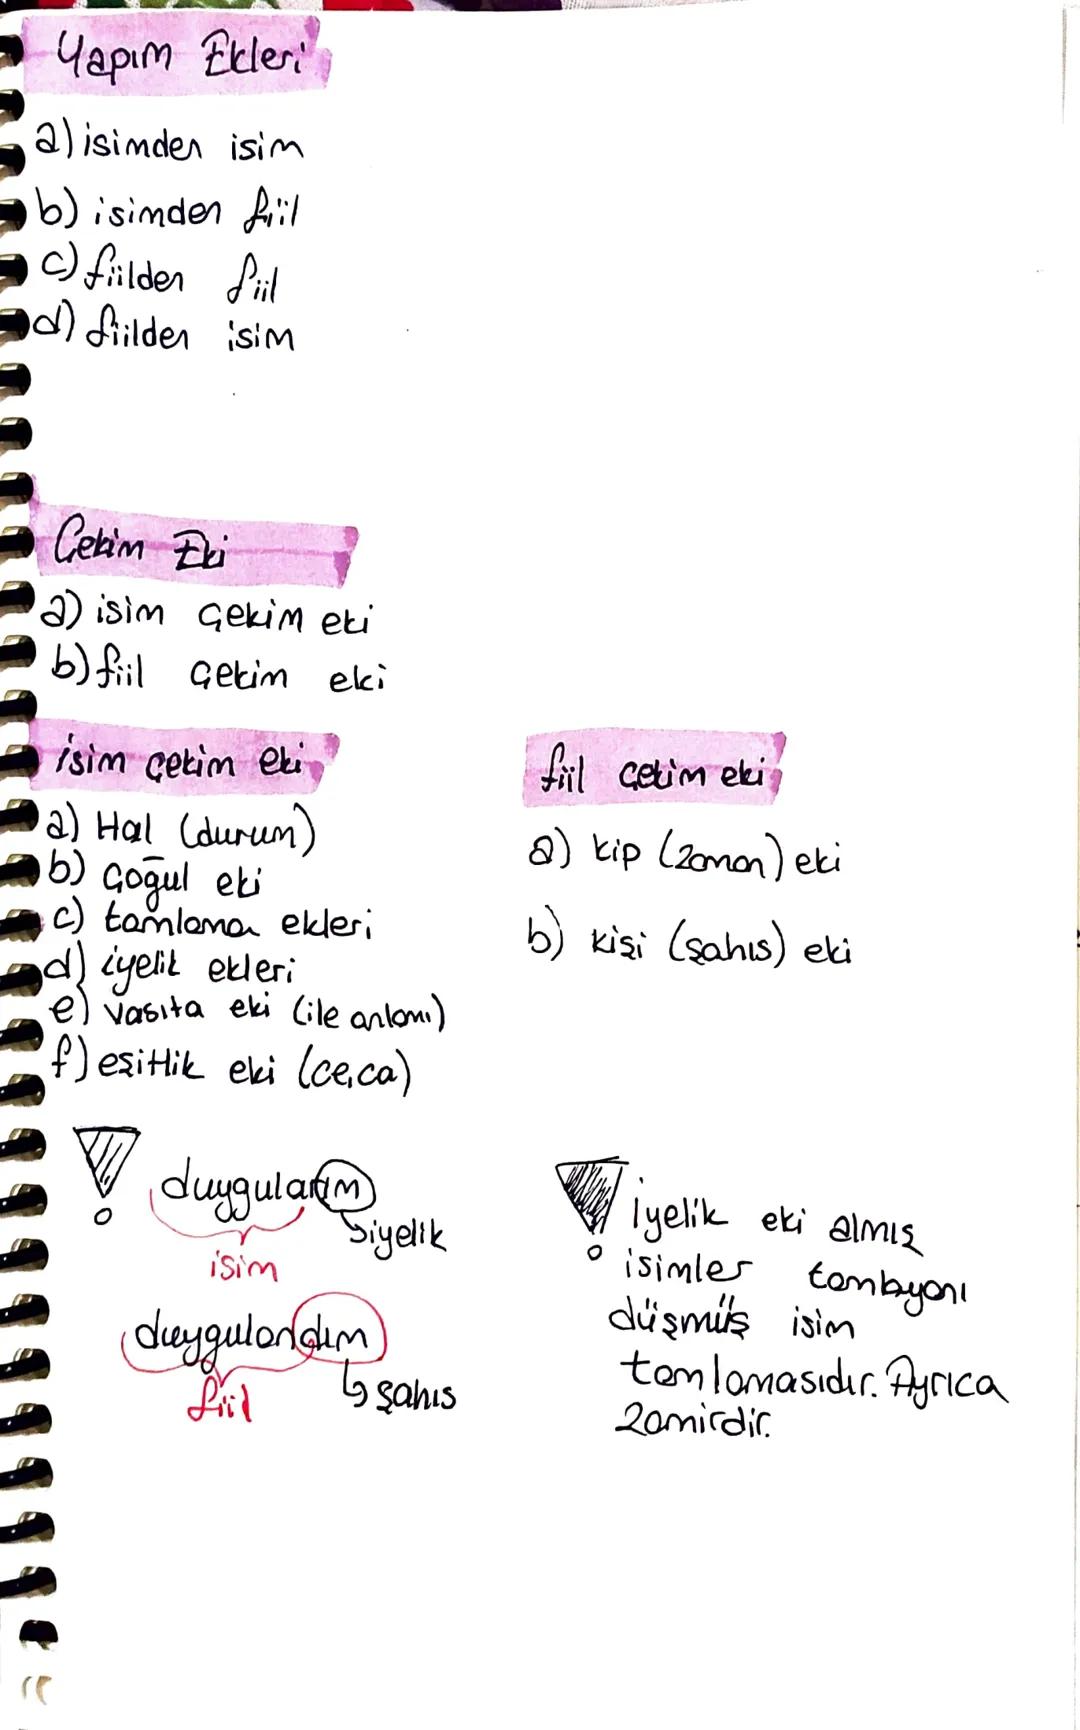 Yapım Ekleri
a) isimden isim
b) isimden fiil
c) fiilden fiil
d) fiilden isim
Çekim Eki
a) isim çekim eki
b) fiil çekim eki
isim çekim eki
a) Hal (durum)
b) çoğul eki
c) tamlama ekleri
d) iyelik ekleri
e) vasıta eki (ile anlamı)
f) eşitlik eki (ce,ca)
fiil çekim eki
a) kip (zaman) eki
b) kişi (şahıs) eki
duygularım
iyelik
isim
duygulandım
şahıs
fiil
İyelik eki almış
isimler tamlayanı
düşmüş isim
tamlamasıdır. Ayrıca
zamirdir.